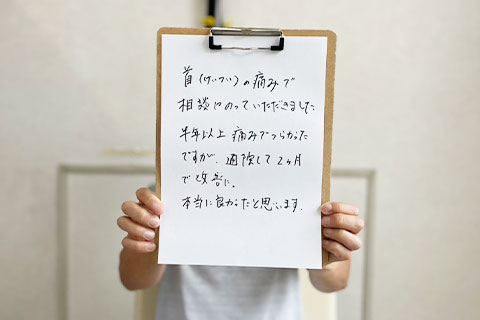 首(けいつい)の痛みで
相談にのっていただきました
半年以上痛みでつらかった
ですが、通院して2ヶ月
で改善に。
本当に良かったと思います。